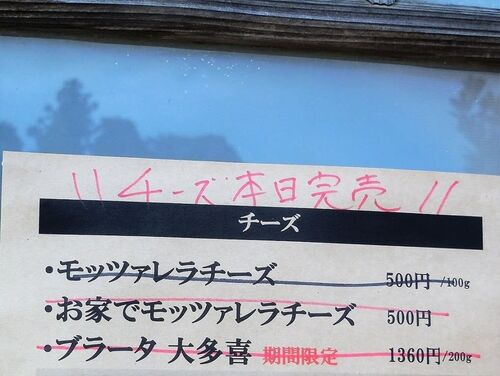 !! チーズ本日完売 !!
チーズ
・モッツァレラチーズ 500円/100g
・お家でモッツァレラチーズ 500円
・ブラータ 大多喜 期間限定 1360円/200g